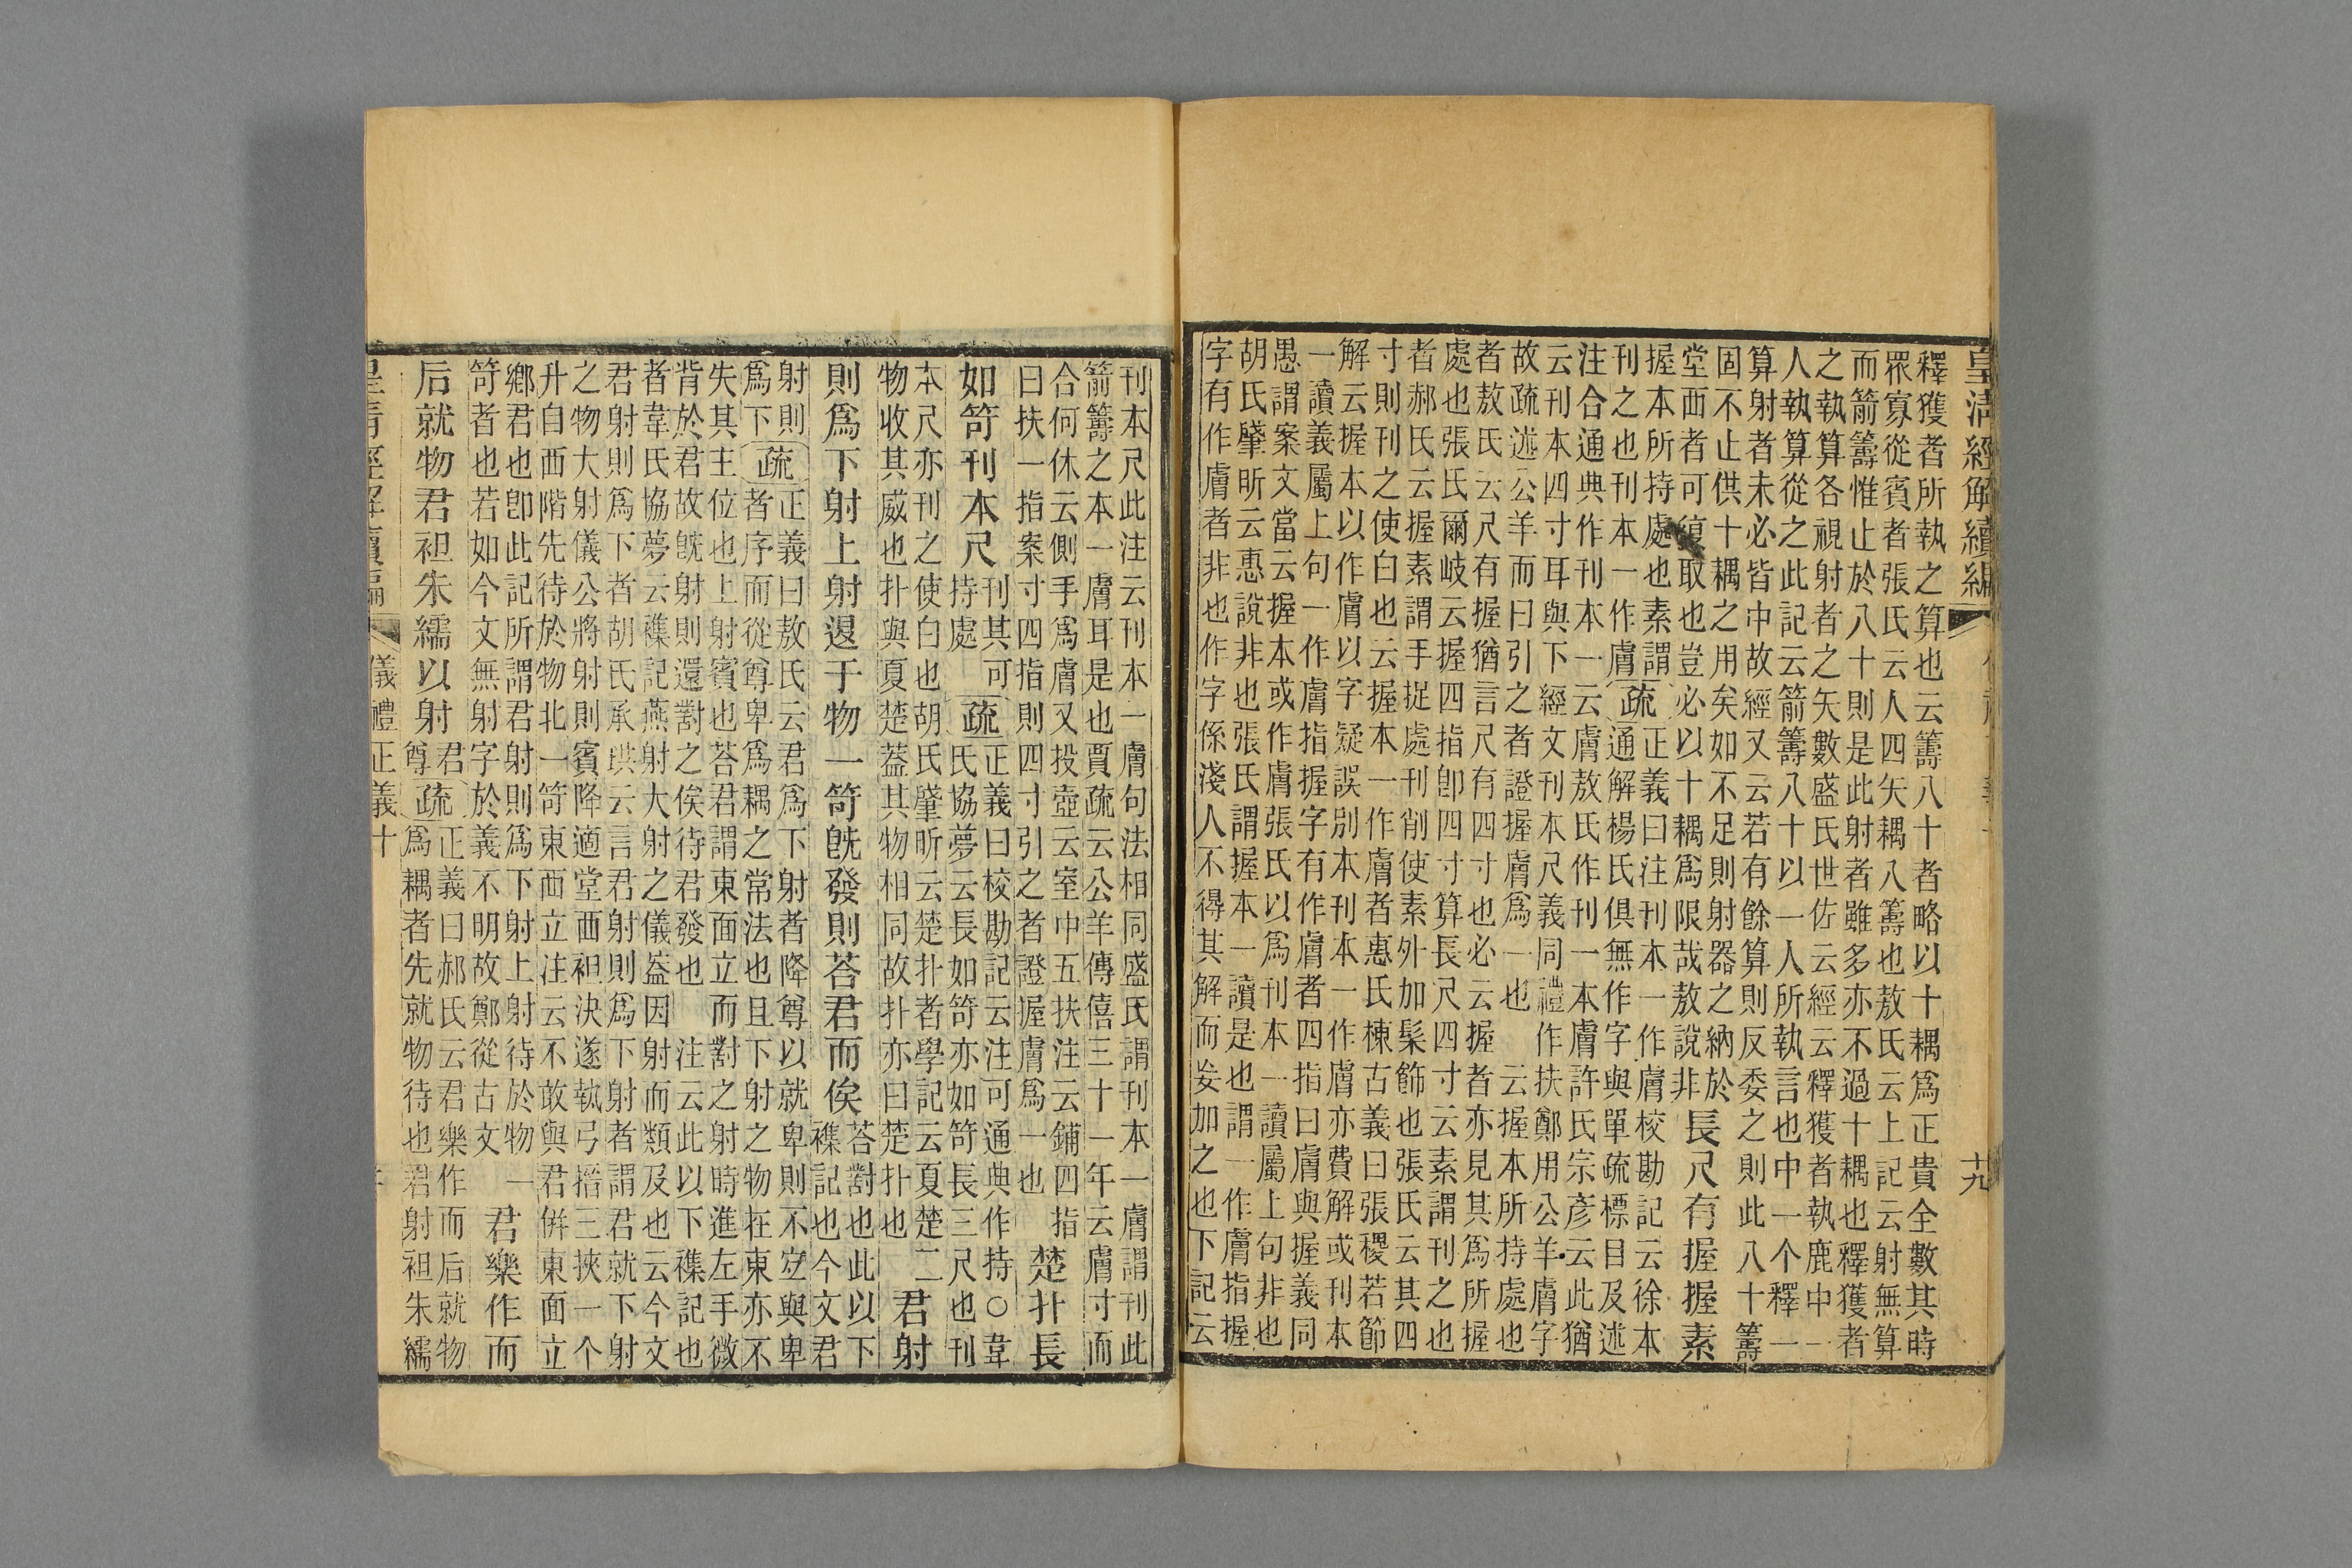 皇清經解續編
十九
釋獲者所執之算也云籌八十者略以十耦爲正貴全數其時
眾寡從賓者張氏云人四矢耦八籌也敖氏云上記云射無算
而箭籌惟止於八十則是此射者雖多亦不過十耦也釋獲者
之執算各視射者之矢數盛氏世佐云經云釋獲者執鹿中一
人執算從之此記云箭籌八十以一人所執言也中一个釋一
算射者未必皆中故經又云若有餘算則反委之則此八十籌
固不止供十耦之用矣如不足則射器之納於
堂西者可復取也豈必以十耦爲限哉敖說非
長尺有握握素
握本所持處也素謂
刊之也刊本一作膚
疏
正義曰注刊本一作膚校勘記云徐本
通解楊氏俱無作字與單疏標目及述
注合通典作刊本一云膚敖氏作刊一本膚許氏宗彥云此猶
云刊本四寸耳與下經文刊本尺義同禮作扶鄭用公羊膚字
故疏述公羊而曰引之者證握膚爲一也 云握本所持處也
者敖氏云尺有握猶言尺有四寸也必云握者亦見其爲所握
處也張氏爾岐云握四指卽四寸算長尺四寸云素謂刊之也
者郝氏云握素謂手捉處刊削使素外加髹飾也張氏云其四
寸則刊之使白也云握本一作膚者惠氏棟古義曰張稷若節
解云握本以作膚以字疑誤別本刊本一作膚亦費解或刊本
一讀義屬上句一作膚指握字有作膚者四指曰膚與握義同
愚謂案文當云握本或作膚張氏以爲刊本一讀屬上句非也
胡氏肇昕云惠說非也張氏謂握本一讀是也謂一作膚指握
字有作膚者非也作字係淺人不得其解而妄加之也下記云
刊本尺此注云刊本一膚句法相同盛氏謂刊本一膚謂刊此
箭籌之本一膚耳是也賈疏云公羊傳僖三十一年云膚寸而
合何休云側手爲膚又投壺云室中五扶注云鋪四指
曰扶一指案寸四指則四寸引之者證握膚爲一也
楚扑長
如笴刊本尺
刊其可
持處
疏
正義曰校勘記云注可通典作持○韋
氏協夢云長如笴亦如笴長三尺也刊
本尺亦刊之使白也胡氏肇昕云楚扑者學記云夏楚二
物收其威也扑與夏楚葢其物相同故扑亦曰楚扑也
君射
則爲下射上射退于物一笴旣發則荅君而俟
荅對也此以下
襍記也今文君
射則
爲下
疏
正義曰敖氏云君爲下射者降尊以就卑則不並與卑
者序而從尊卑爲耦之常法也且下射之物在東亦不
失其主位也上射賓也荅君謂東面立而對之射時進左手微
背於君故旣射則還對之俟待君發也 注云此以下襍記也
者韋氏協夢云襍記燕射大射之儀葢因射而類及也云今文
君射則爲下者胡氏承珙云言君射則爲下射者謂君就下射
之物大射儀公將射則賓降適堂西袒決遂執弓搢三挾一个
升自西階先待於物北一笴東面立注云不敢與君併東面立
鄉君也卽此記所謂君射則爲下射上射待於物一
笴者也若如今文無射字於義不明故鄭從古文
君樂作而
后就物君袒朱繻以射
君
尊
疏
正義曰郝氏云君樂作而后就物
爲耦者先就物待也君射袒朱繻
皇清經解續編
儀禮正義十